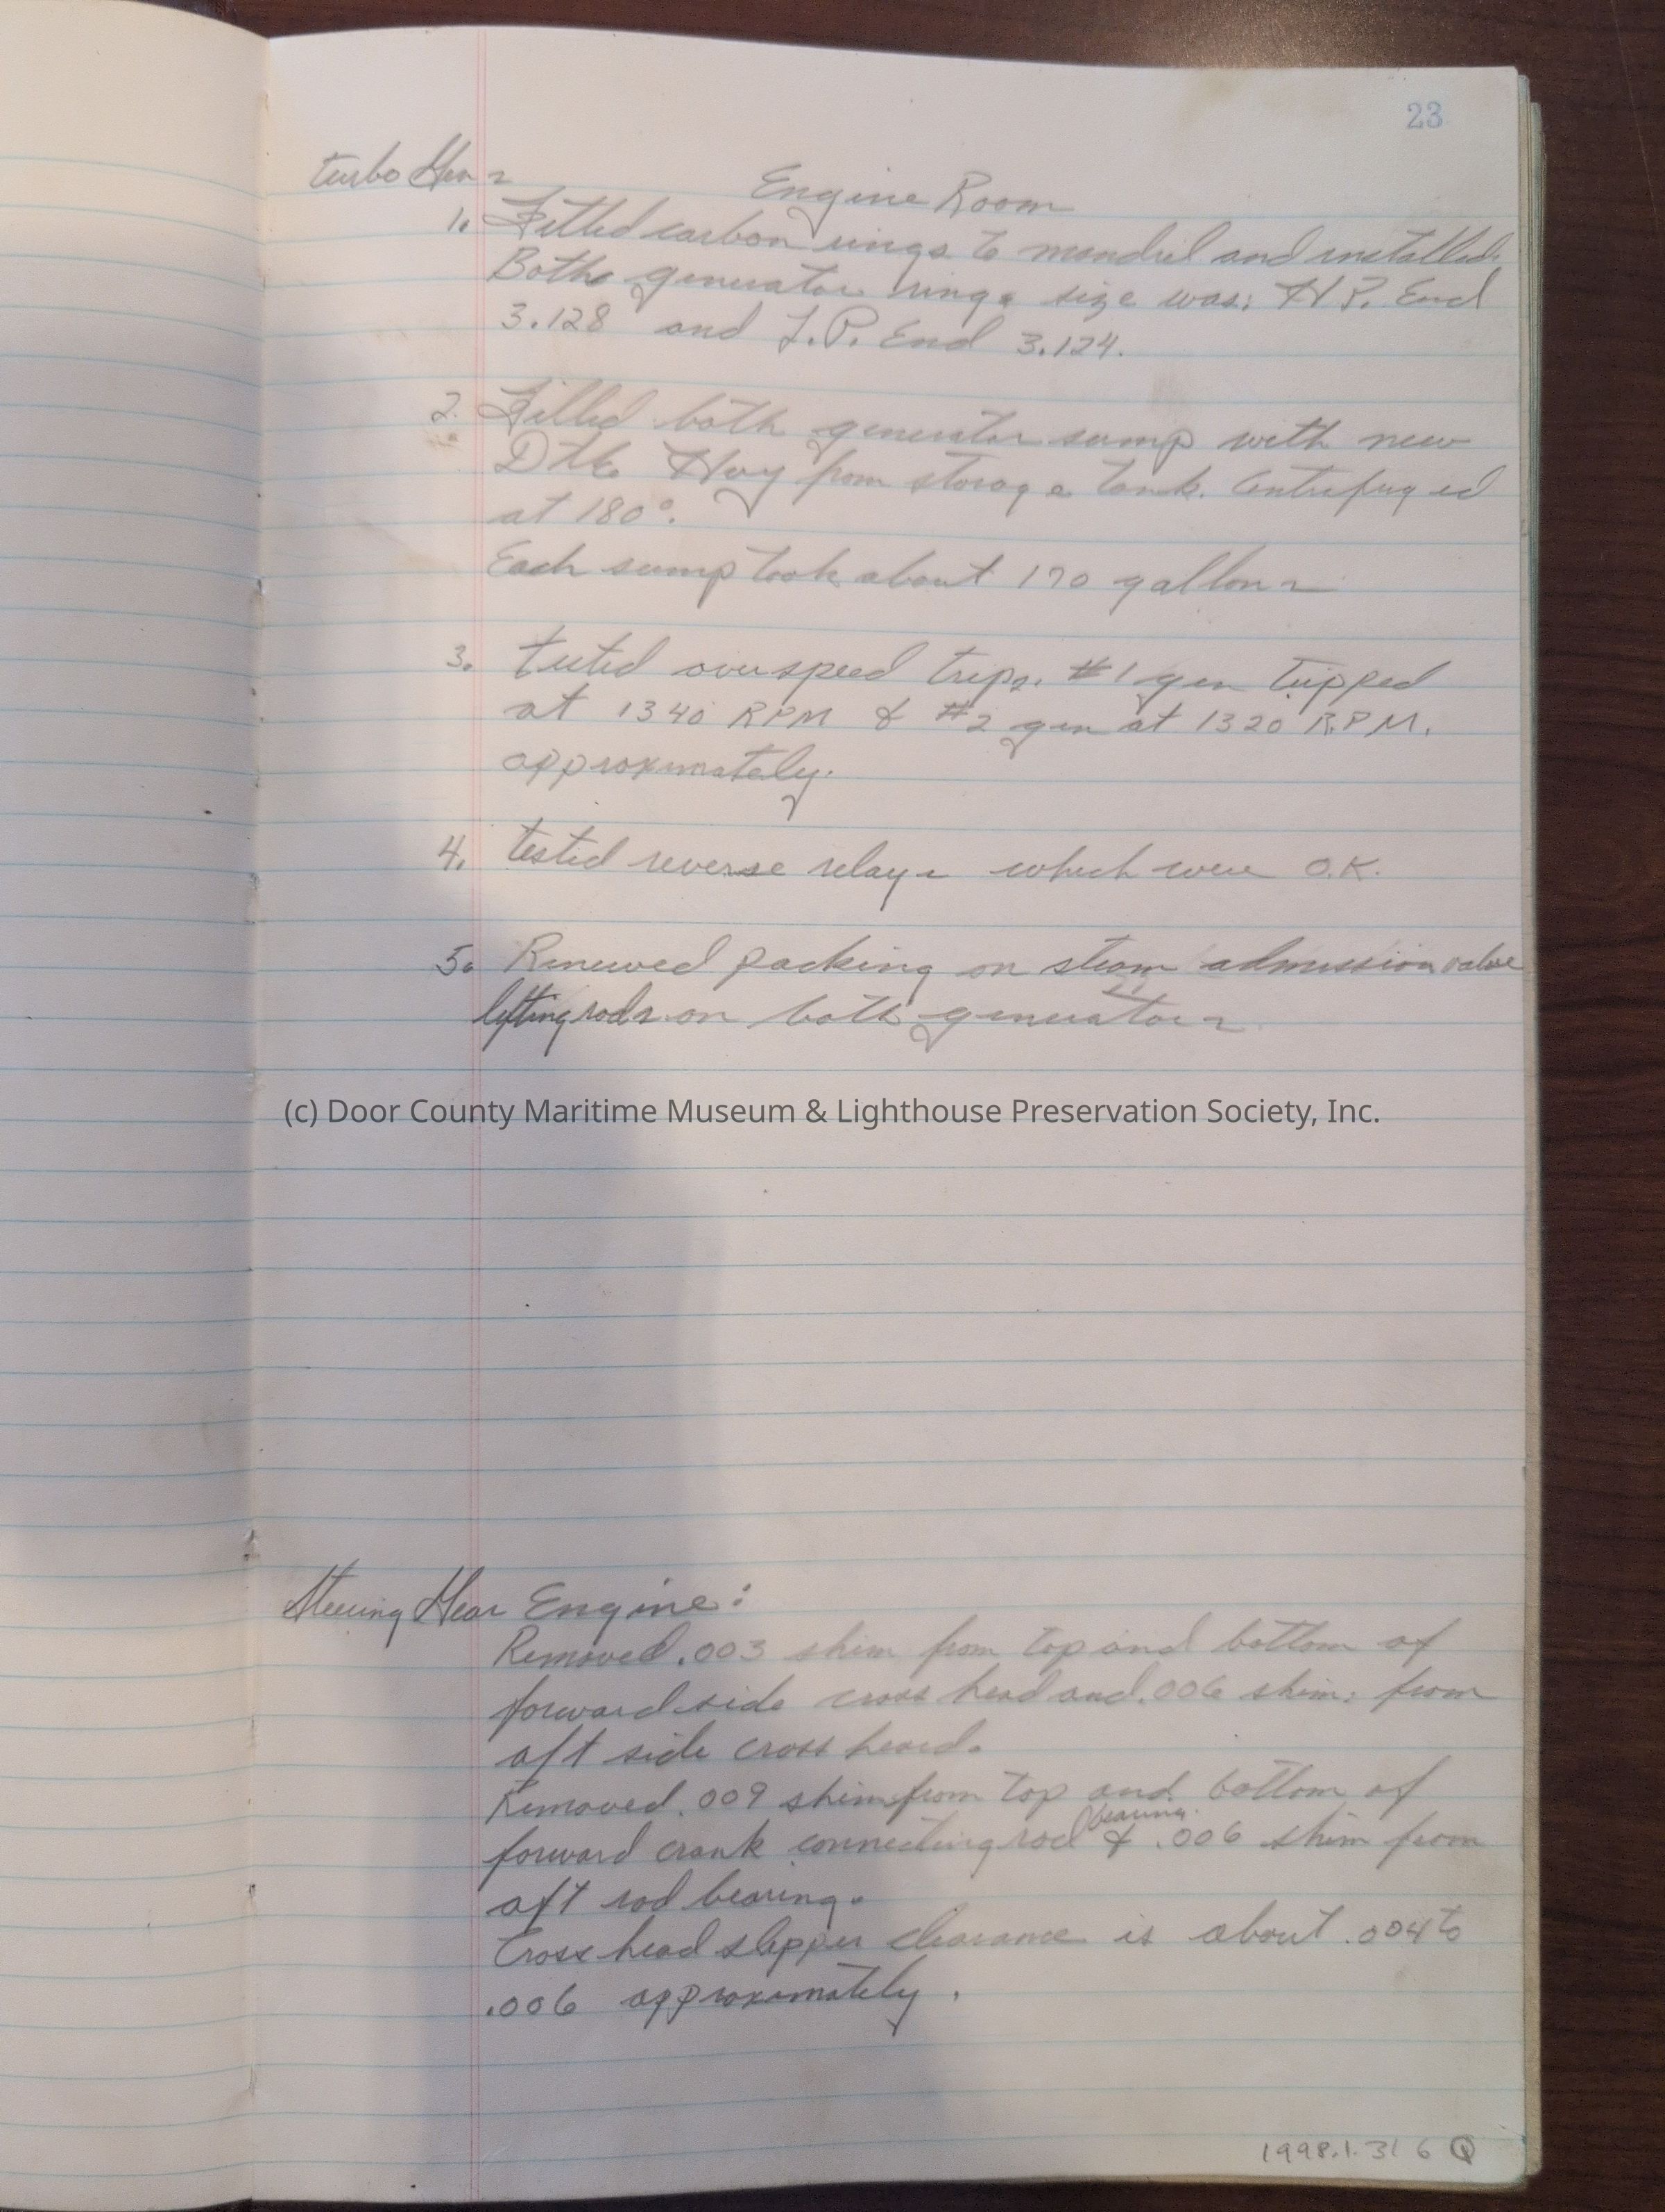 23
turbo Gens
Engine Room
1. Fitted carbon rings to mandril and installed.
Both generator rings size was: H.P. End
3.128 and L.P. End 3.124.
2. Filled both generator sump with new
DTE Hvy from storage tank. Centrifuged
at 180°.
Each sump took about 170 gallons
3. tested overspeed trips. #1 gen tripped
at 1340 RPM & #2 gen at 1320 R.P.M.
approximately.
4. tested reverse relays which were O.K.
5. Renewed packing on steam admission valve
lifting rods on both generators
(c) Door County Maritime Museum & Lighthouse Preservation Society, Inc.
Steering Gear Engine:
Removed .003 shim from top and bottom of
forward side cross head and .006 shim: from
aft side cross head.
Removed .009 shim from top and bottom of
bearing.
forward crank connecting rod & .006 shim from
aft rod bearing.
Cross head slipper clearance is about .004 to
.006 approximately.
1998.1.31 6 Q